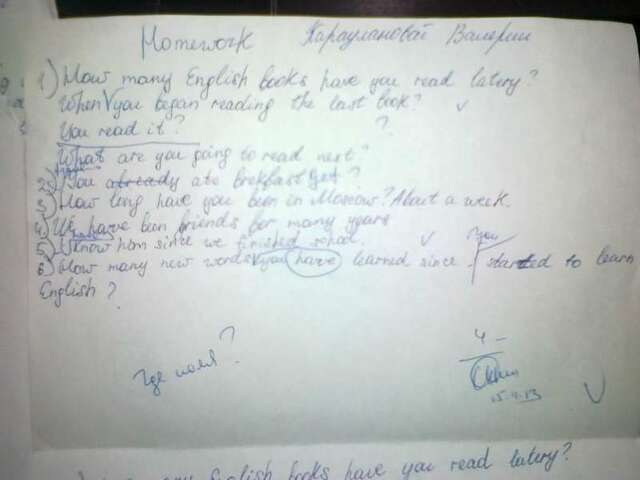 Homework Карауловой Валерии
1) How many English books have you read latery?
When you began reading the last book?
You read it? ?
What are you going to read next?
2) You already ate brekfast yet?
3) How long have you been in Moscow? About a week.
4) We have been friends for many years
5) I know him since we finished school.
6) How many new words you have learned since you started to learn
English?
где ?
4-
15.4.13
English books have you read latery?